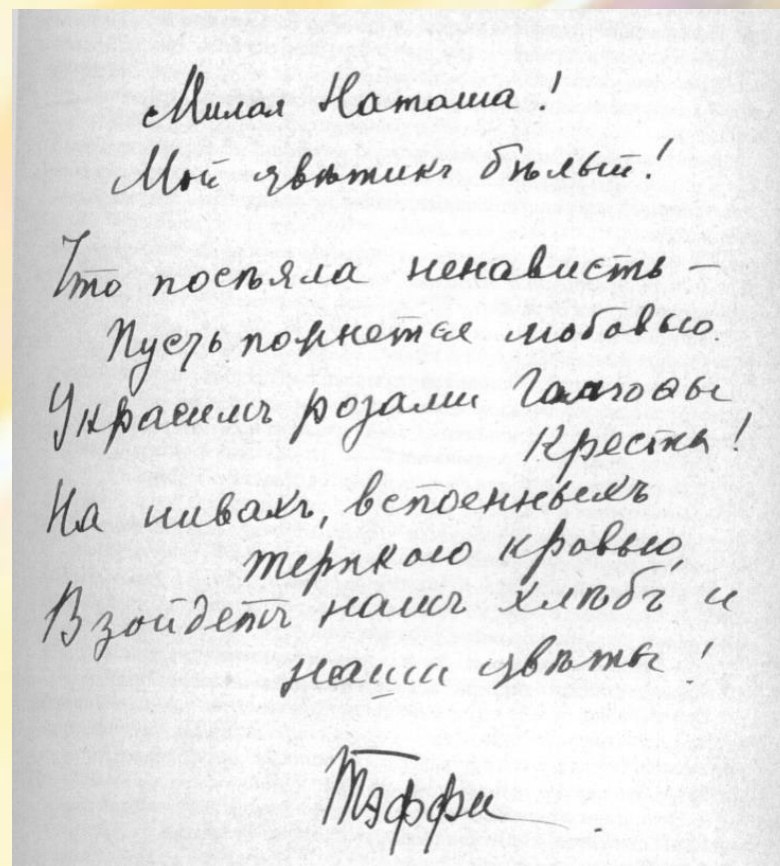 Милая Наташа!
Мой цвѣтикъ бѣлый!
Что посѣяла ненависть –
Пусть пожнется любовью.
Украсимъ розами Голгофы
Кресты!
На нивахъ, вспоенныхъ
терпкою кровью,
Взойдетъ нашъ хлѣбъ и
наши цвѣты!
Тэффи